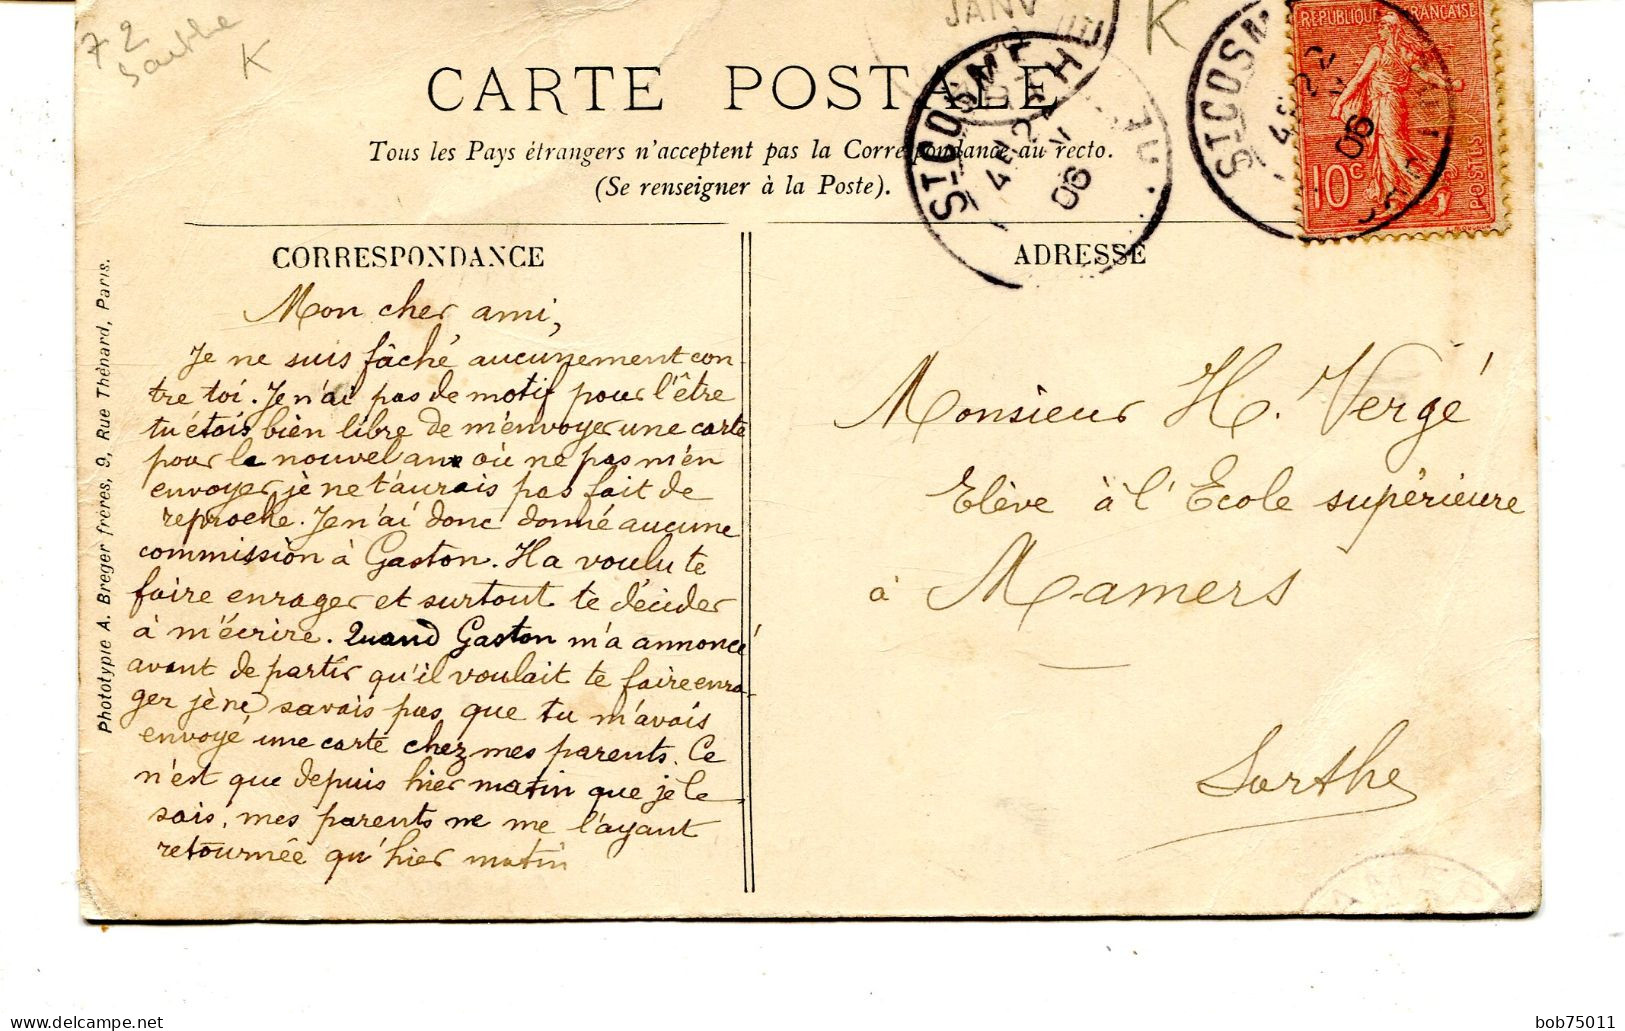 72
Sarthe
K
JANV
K
CARTE POSTALE
Tous les Pays étrangers n'acceptent pas la Correspondance au recto.
(Se renseigner à la Poste).
ST COSME
4E
2
JANV
06
ST COSM
4E
06
REPUBLIQUE FRANÇAISE
10c
POSTES
CORRESPONDANCE
ADRESSE
Mon cher ami,
Je ne suis fâché aucunement con-
tre toi. Je n'ai pas de motif pour l'être
tu étois bien libre de m'envoyer une carte
pour le nouvel an où ne pas m'en
envoyer je ne t'aurais pas fait de
reproche. Je n'ai donc donné aucune
commission à Gaston. Il a voulu te
faire enrager et surtout te décider
à m'écrire. Quand Gaston m'a annoncé
avant de partir qu'il voulait te faire enra-
ger je ne savais pas que tu m'avais
envoyé une carte chez mes parents. Ce
n'est que depuis hier matin que je le
sais, mes parents ne me l'ayant
retournée qu'hier matin
Monsieur H. Vergé
Elève à l'Ecole supérieure
à Mamers
Sarthe
Phototypie A. Breger frères, 9, Rue Thénard, Paris.
delcampe.net
bob75011